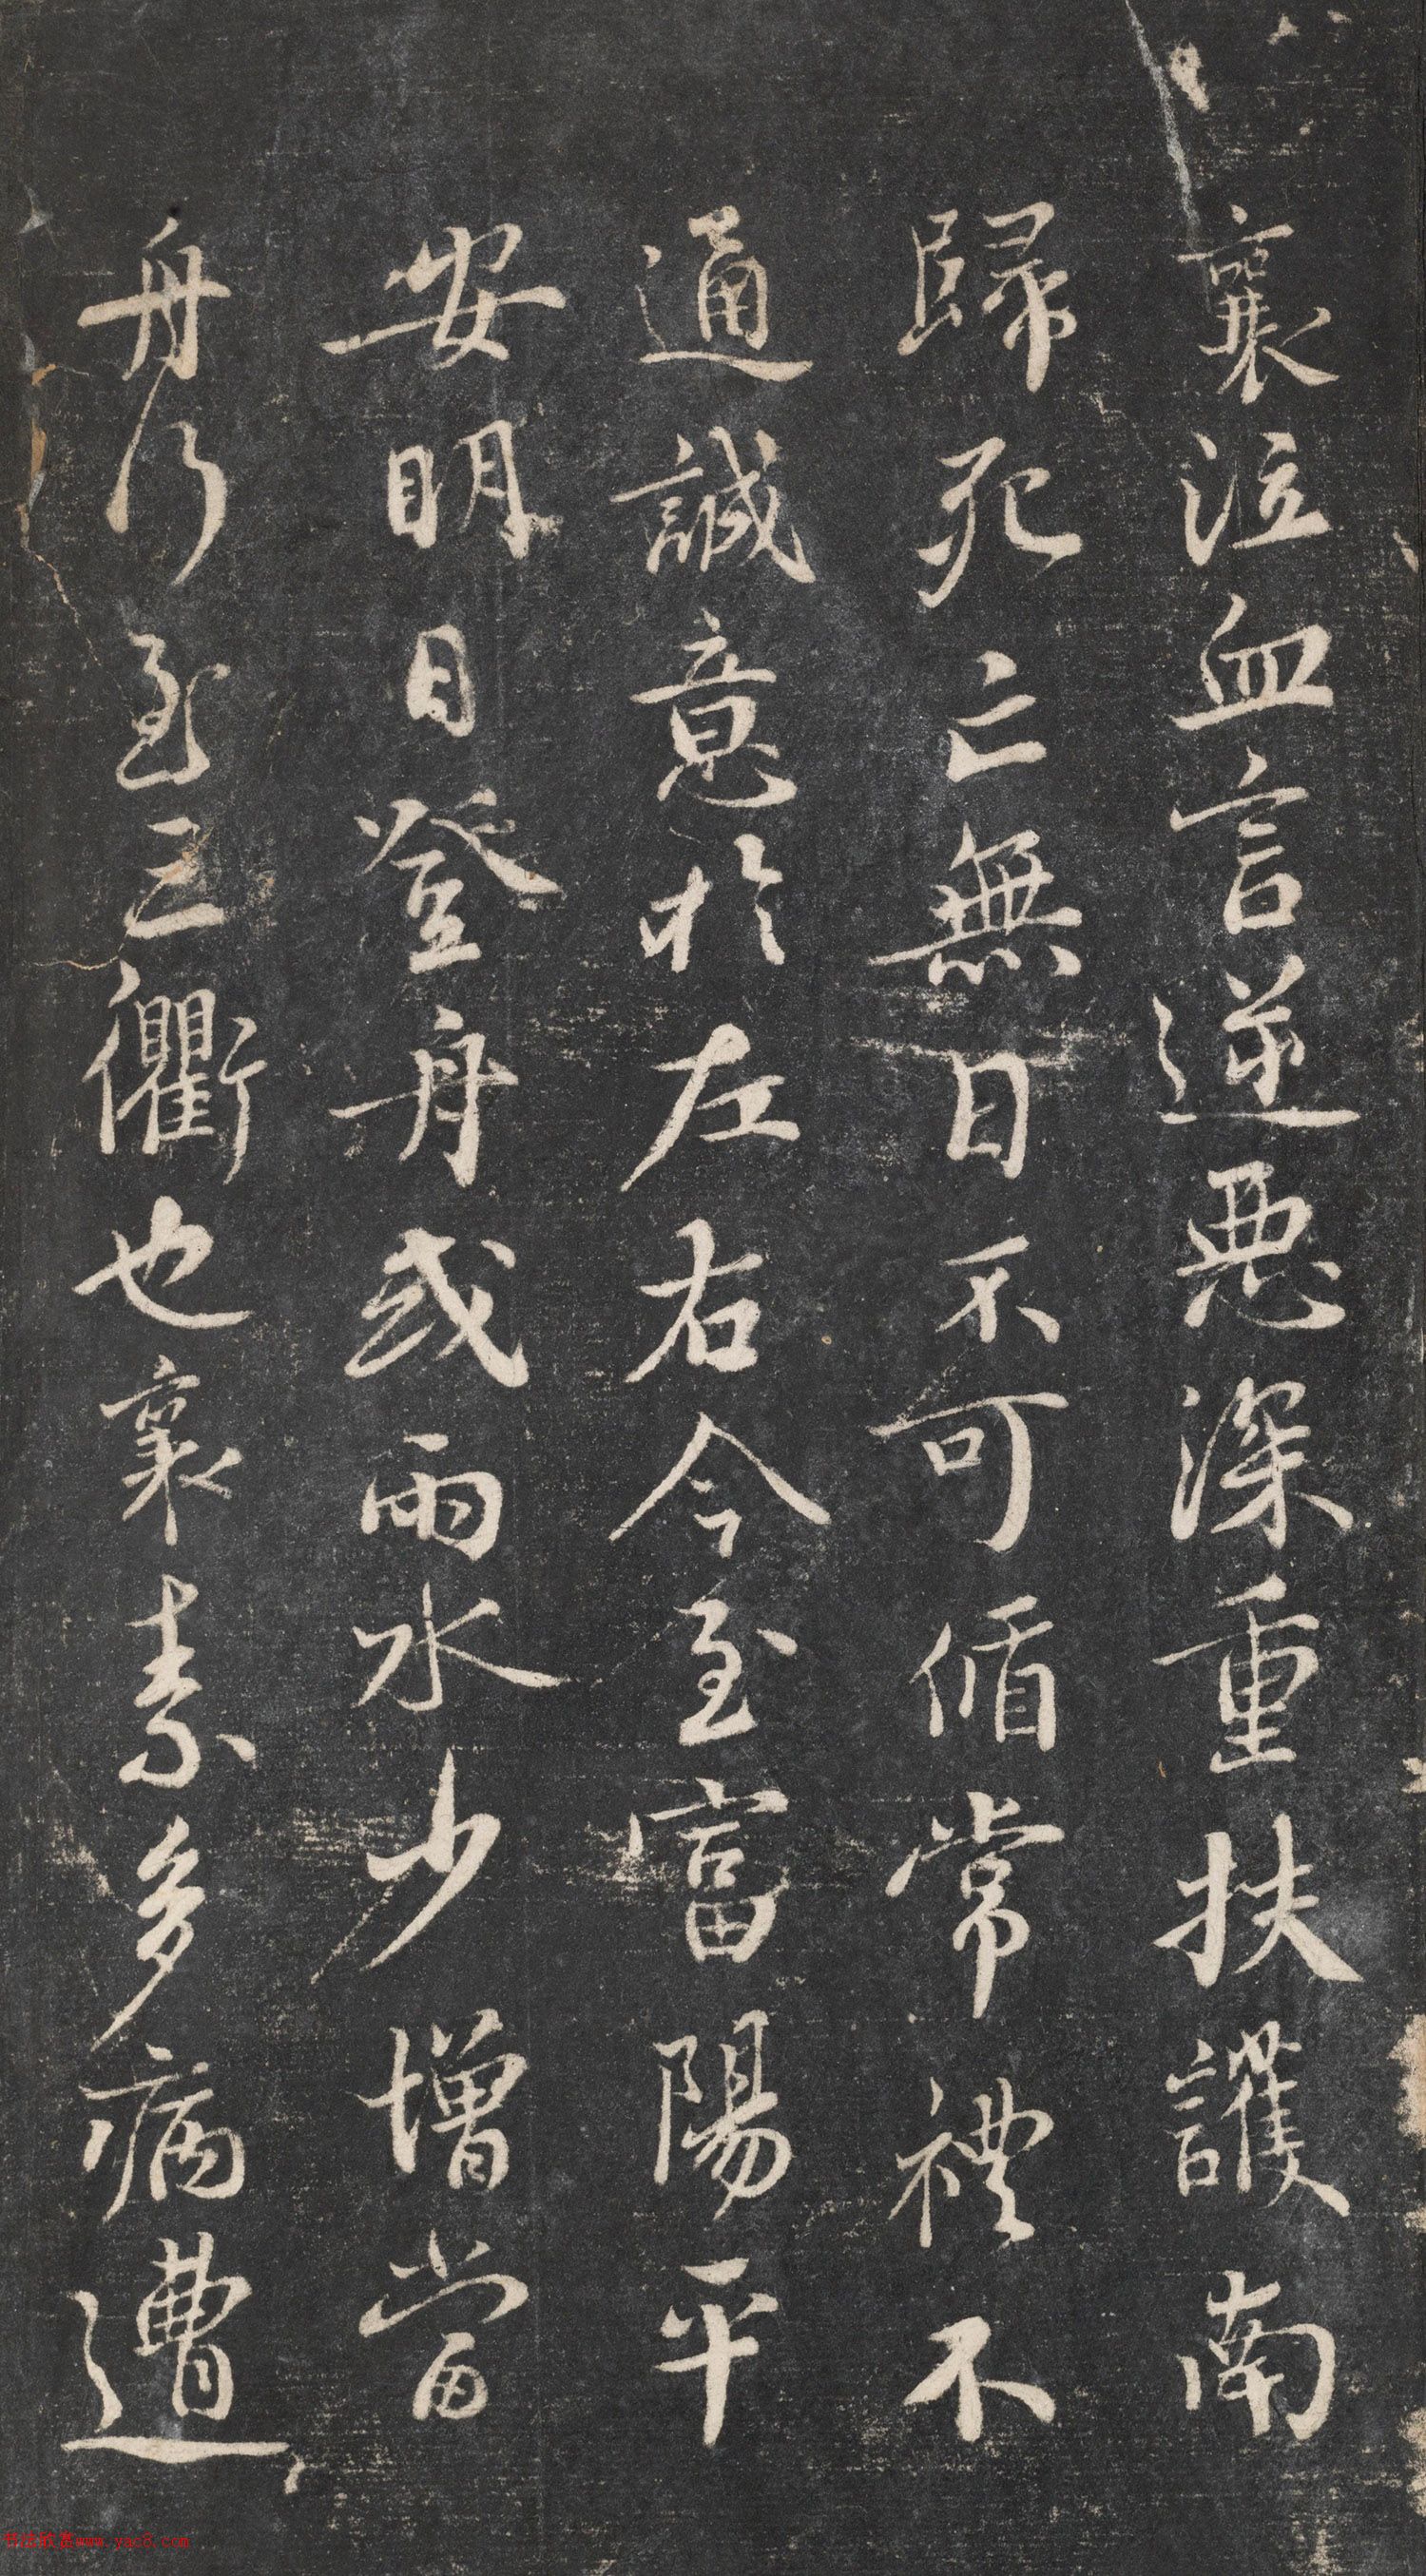 襄泣血言逆惡深重扶護南
歸死亡無日不可循常禮不
通誠意於左右今至富陽平
安明日登舟或雨水少增當
舟行至三衢也襄素多病遭
书法欣赏www.yac8.com